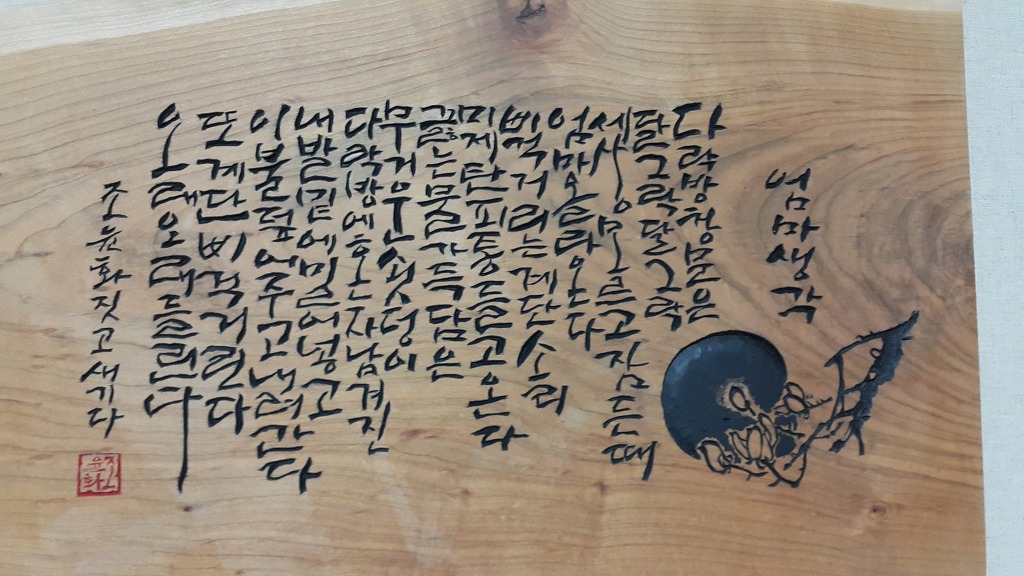 엄마생각
다락방창문은
달그락달그락
세상모르고잠든때
엄마올라온다
삐걱거리는계단소리
미제탄피통들고온다
끓는물가득담은
무거운쇳덩이
다락방에혼자남겨진
내발밑에밀어넣고
이불덮어주고내려간다
또계단삐걱거린다
오래오래들린다
조윤화짓고새기다